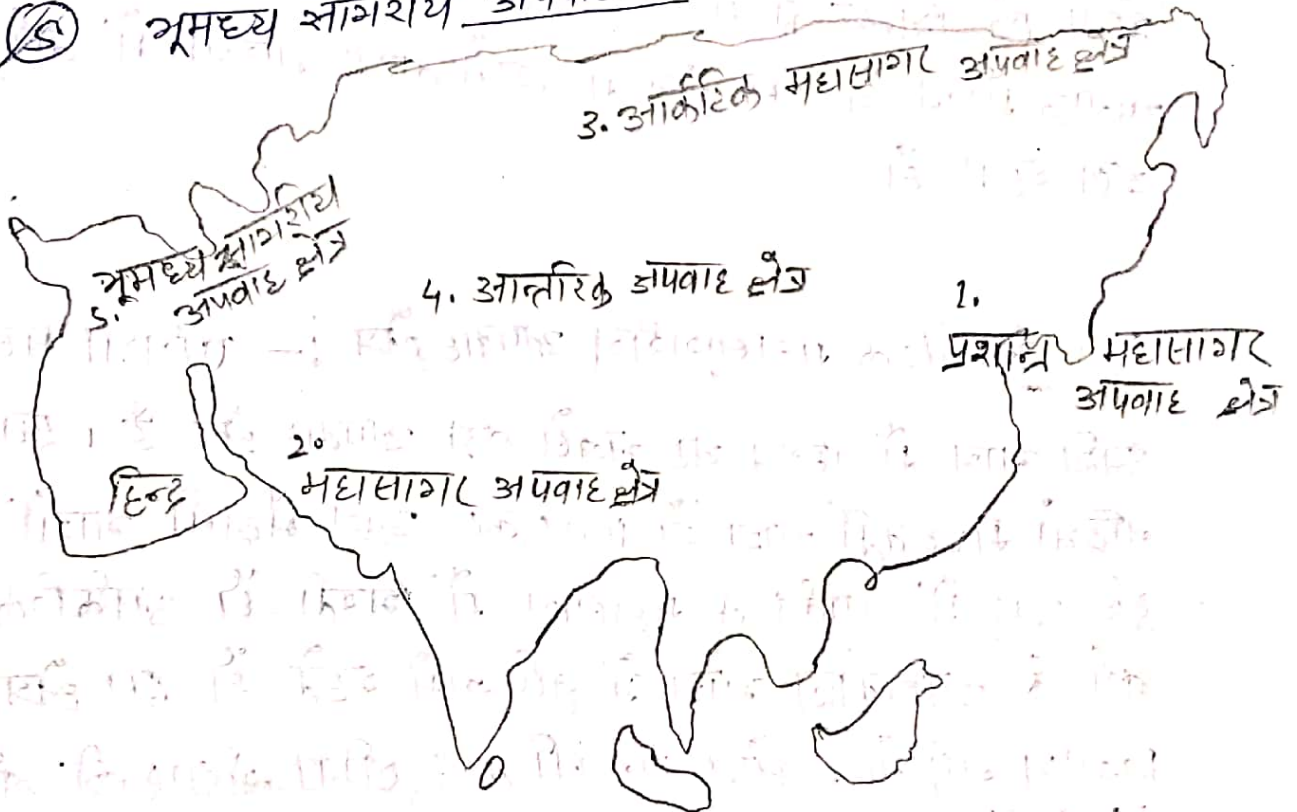 ⑤ भूमध्य सागरीय
3. आर्कटिक महासागर अपवाह क्षेत्र
5. भूमध्य सागरीय
अपवाह क्षेत्र
4. आन्तरिक अपवाह क्षेत्र
1.
प्रशान्त महासागर
अपवाह क्षेत्र
2.
हिन्द महासागर अपवाह क्षेत्र